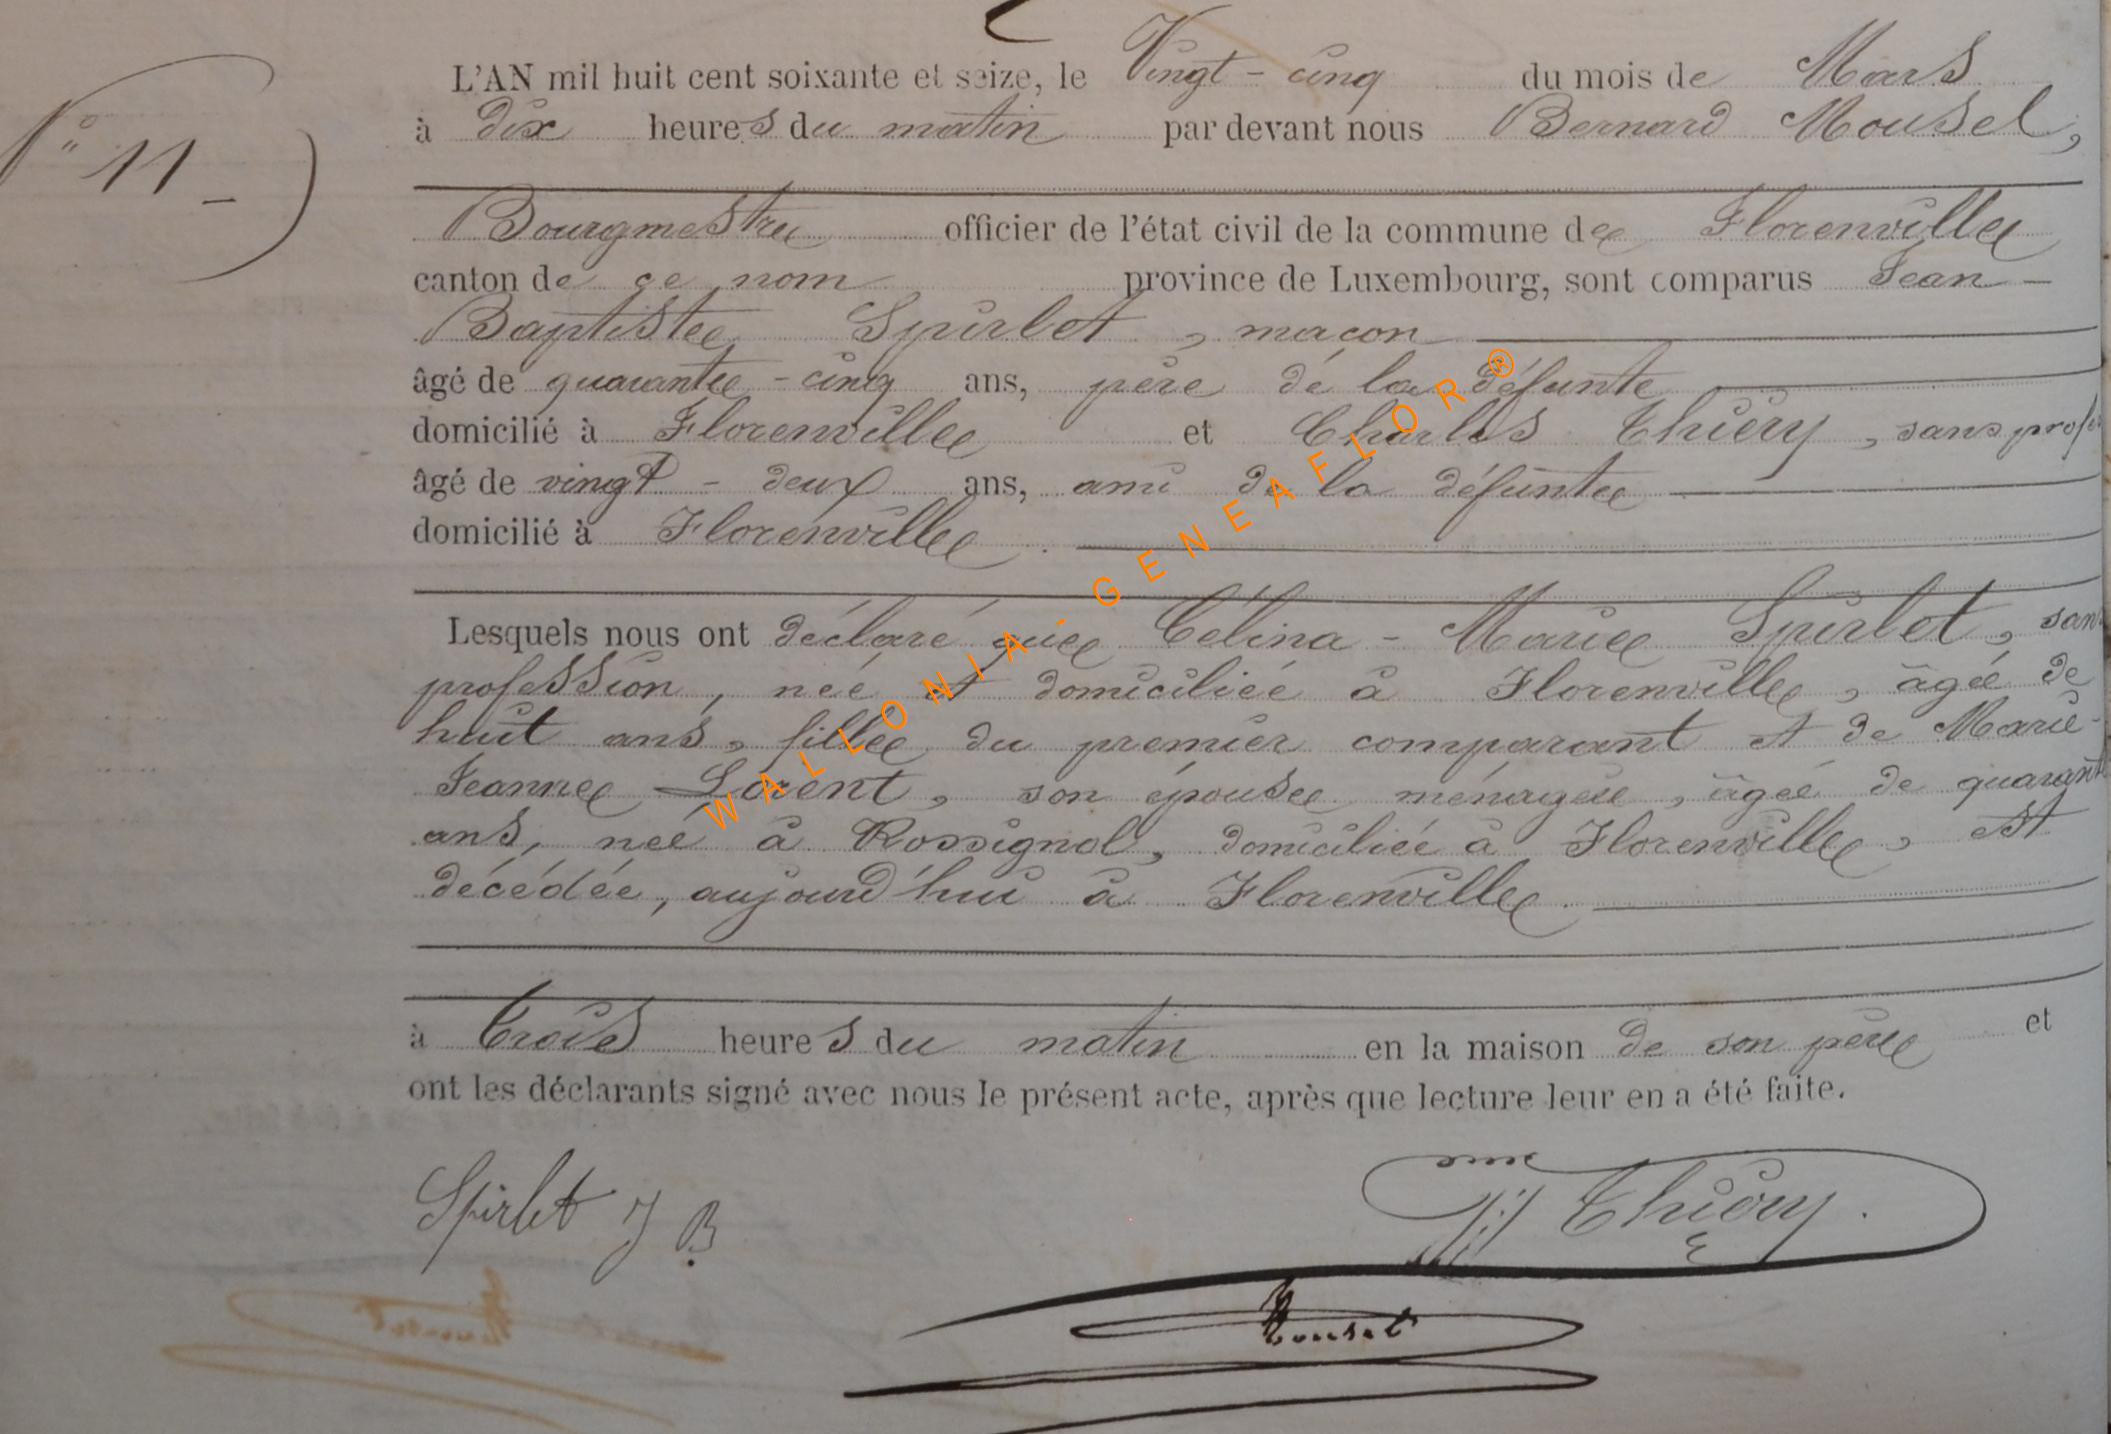 L'AN mil huit cent soixante et seize, le Vingt-cinq du mois de Mars
N° 11 -
à dix heures du matin par devant nous Bernard Mousel,
Bourgmestre officier de l'état civil de la commune de Florenville
canton de ce nom province de Luxembourg, sont comparus Jean-
Baptiste Spirlet, maçon
âgé de quarante-cinq ans, père de la défunte
domicilié à Florenville et Charles Thiéry, sans profes
âgé de vingt-deux ans, ami de la défunte
domicilié à Florenville.
Lesquels nous ont déclaré que Célina-Marie Spirlet, sans
profession, née et domiciliée à Florenville, âgée de
huit ans, fille du premier comparant et de Marie-
Jeanne Lorent, son épouse ménagère, âgée de quarante
ans, née à Rossignol, domiciliée à Florenville, est
décédée, aujourd'hui à Florenville.
à trois heures du matin en la maison de son père et
ont les déclarants signé avec nous le présent acte, après que lecture leur en a été faite.
Spirlet J B.
Thiéry.
Mousel
WALLONIA-GENEAFLOR®